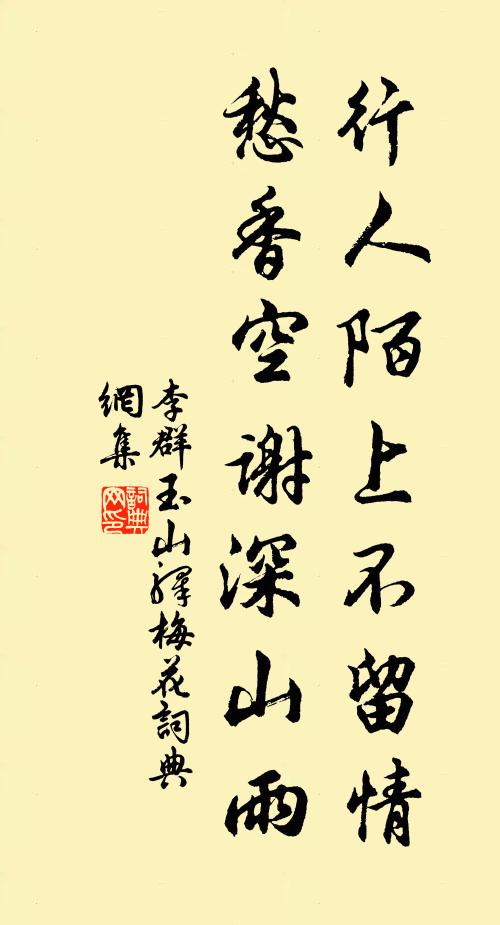 行人陌上不留情
愁香空谢深山雨
李群玉山驿梅花詞典
網集
詞典
网印